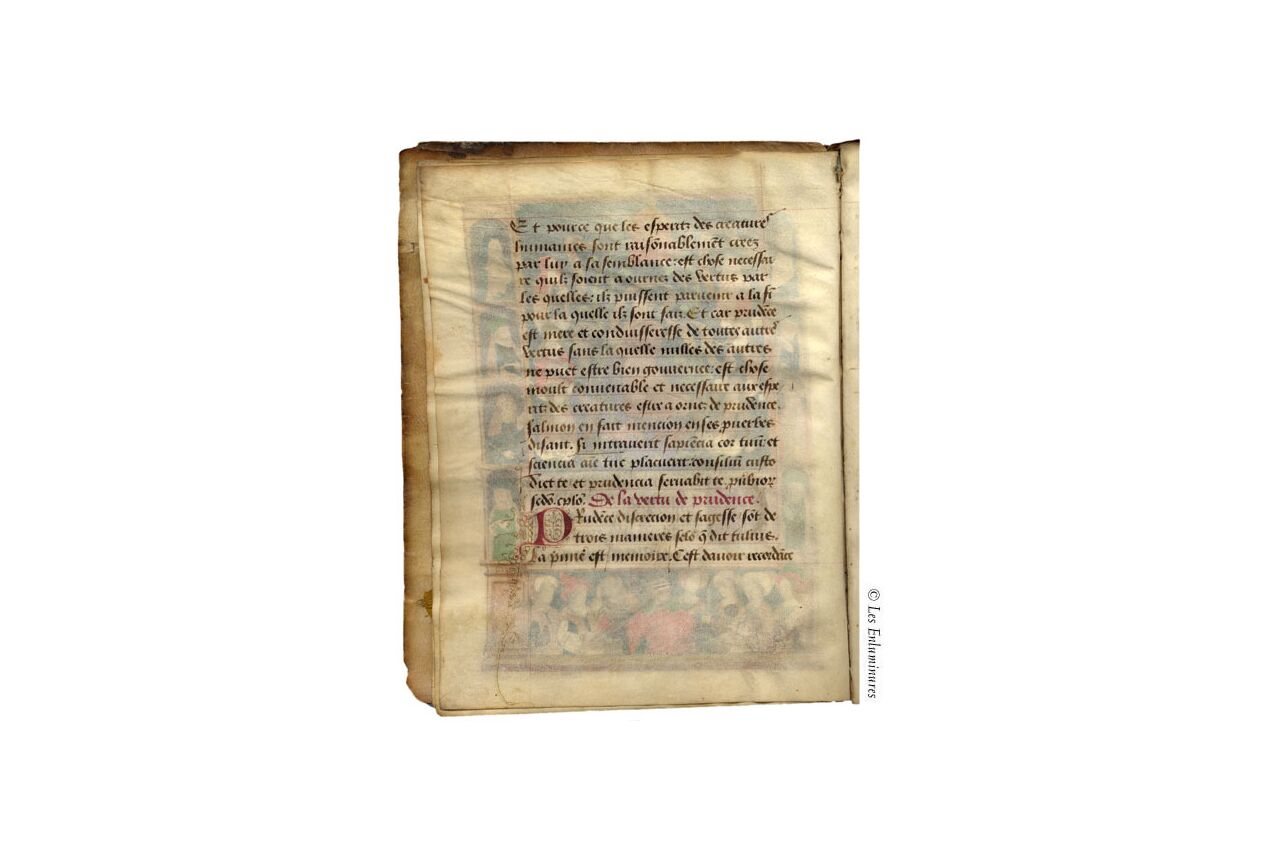 Et pource que les esperitz des creatures
humaines sont raisōnablemēt creez
par luy a sa semblance: est chose necessai
re quilz soient aournez des vertus par
les quelles: ilz puissent paruenir a la fī
pour la quelle ilz sont faiz. Et car prudēce
est mere et conduisseresse de toutes autres
vertus sans la quelle nulles des autres
ne puet estre bien gouuernee: est chose
moult conuenable et necessaire aux espe
ritz des creatures estre aornez de prudence.
Salmon en fait mencion en ses puerbes
disant. Si intrauerit sapiēcia cor tuū: et
sciencia aīe tue placuerit: consiliū custo
diet te et prudencia seruabit te. puͥbior
scdo. cplo. De la vertu de prudence.
PRudēce discrecion et sagesse sōt de
trois manieres selō q̄ dit tulius.
La p̄mie est memoire. Cest dauoir recordāce
© Les Enluminures